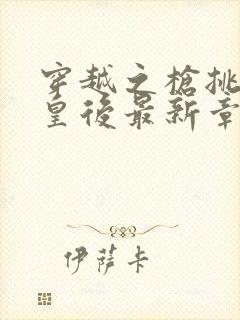 穿越之槍挑
皇後最新章
伊薩卡